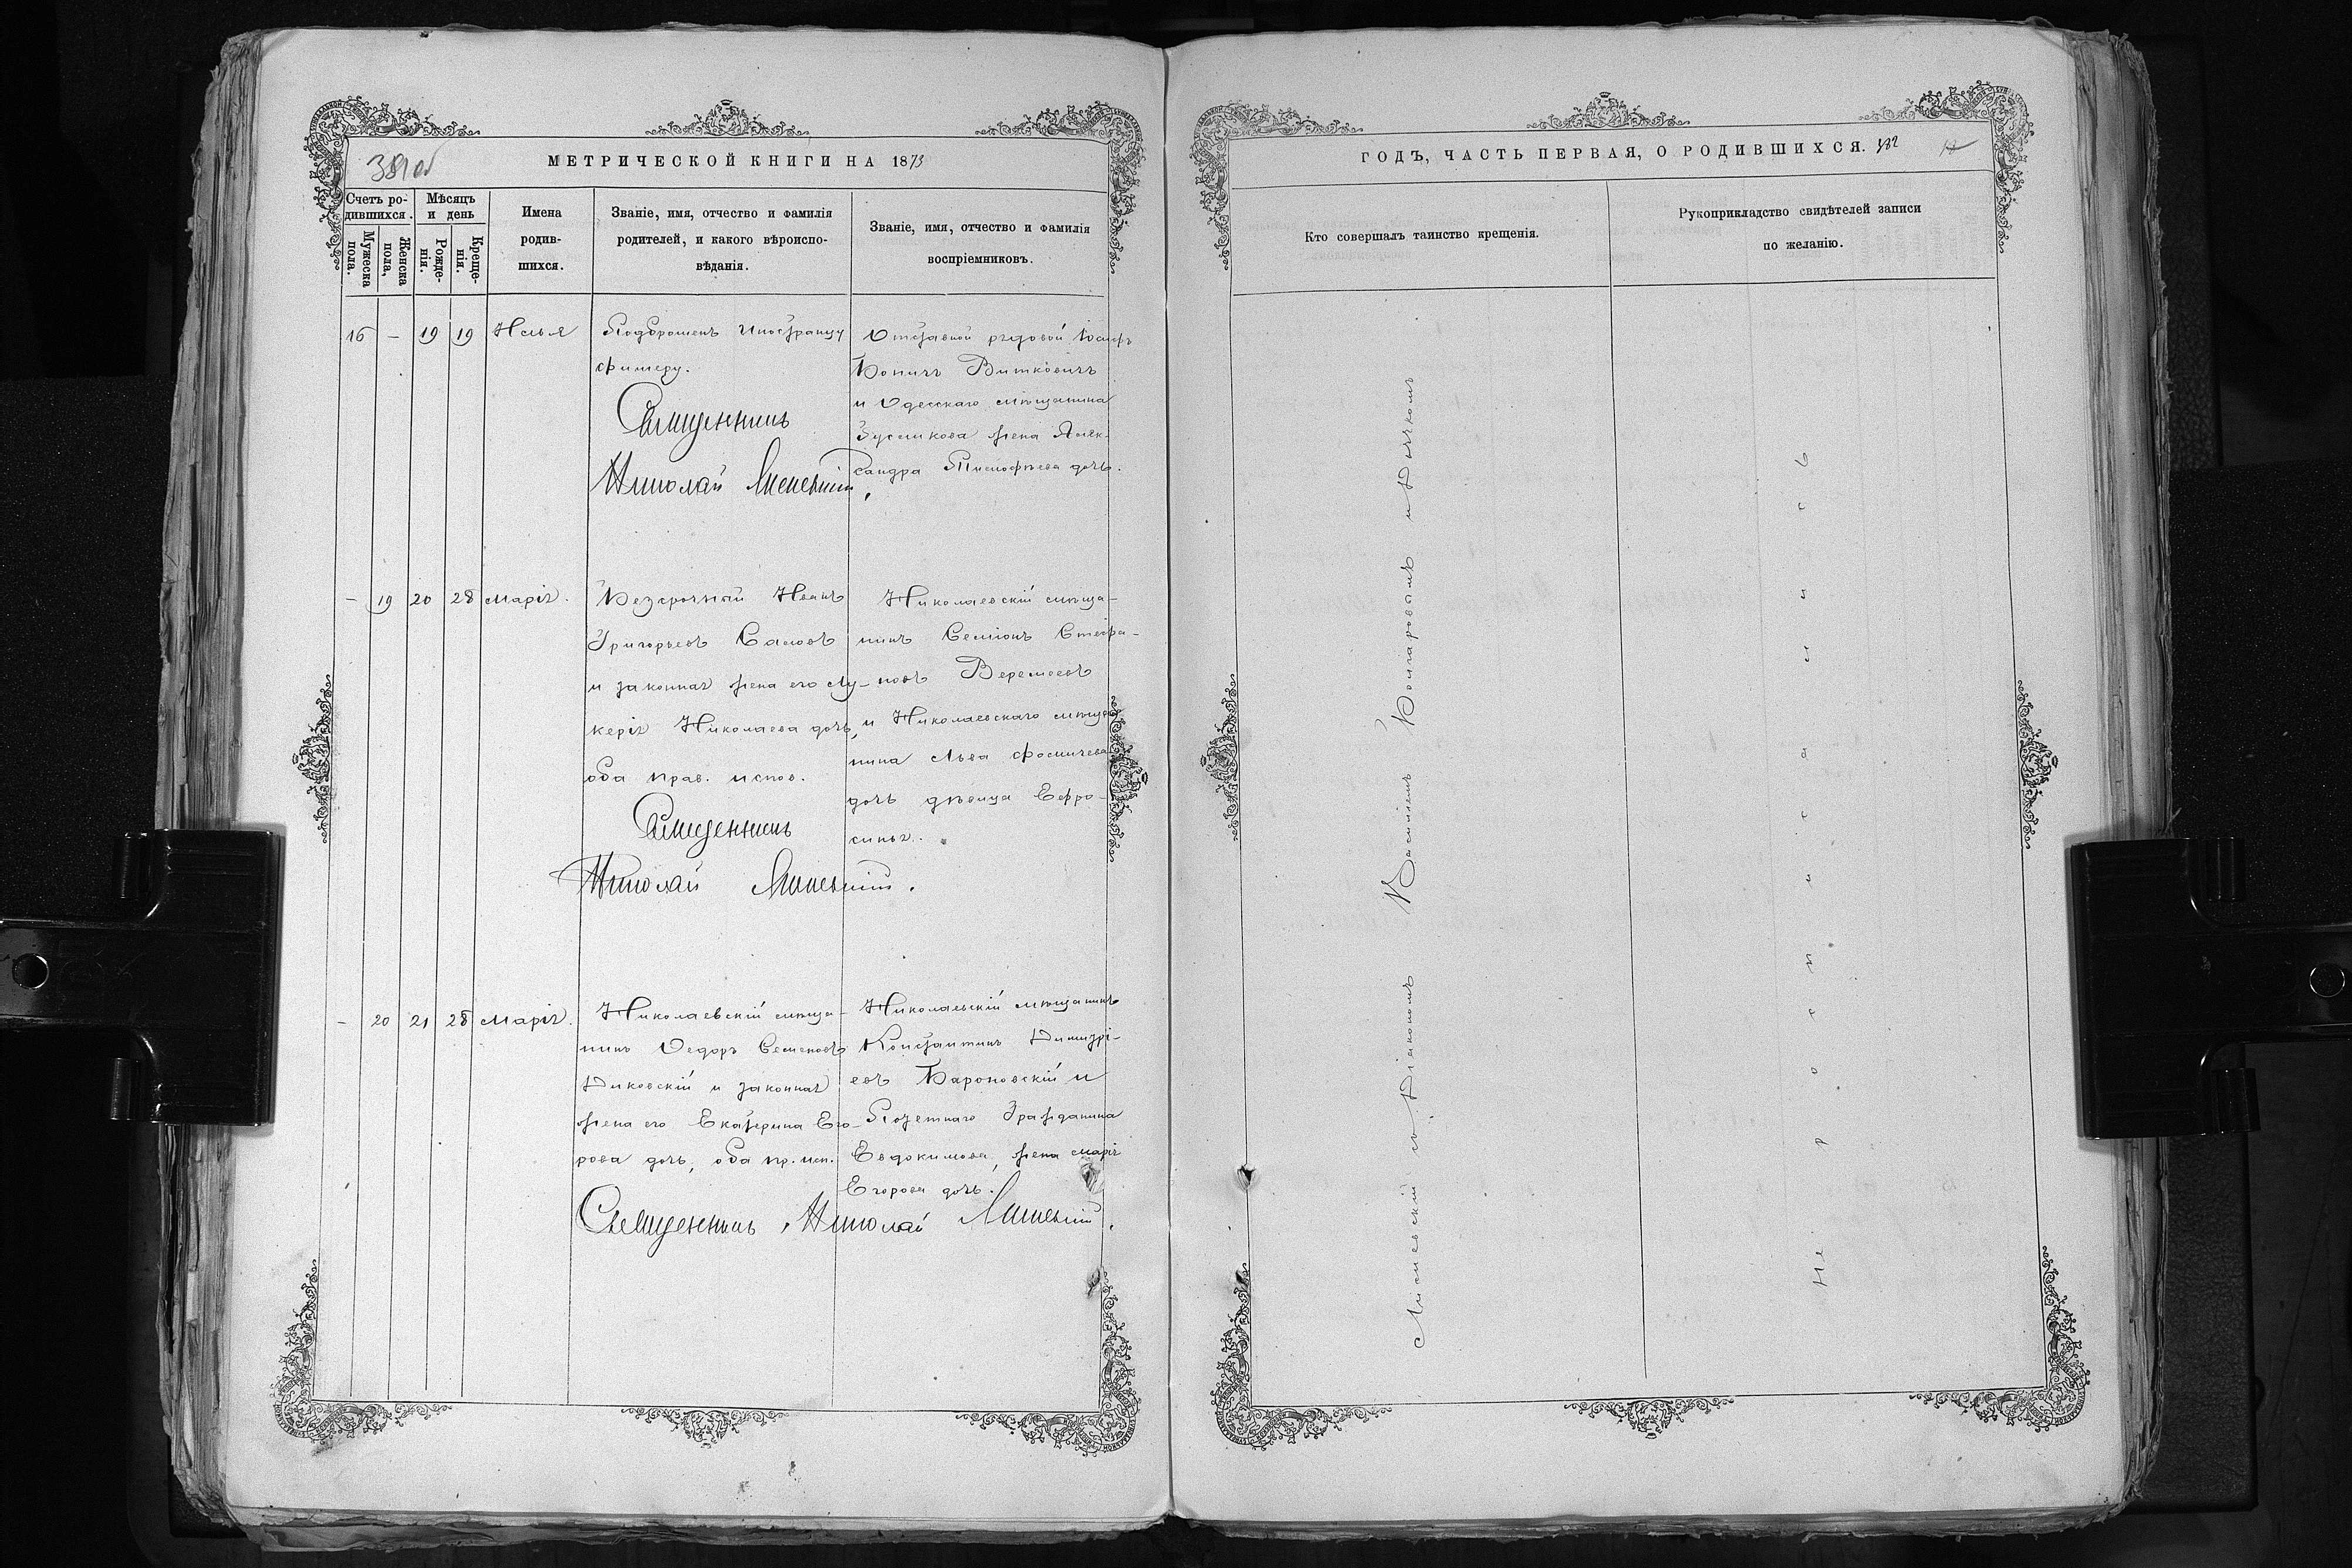 381об
МЕТРИЧЕСКОЙ КНИГИ НА 1873
Счетъ ро-
дившихся.
Мужеска
пола.
Женска
пола,
Мѣсяцъ
и день
Рожде-
нія.
Креще-
нія.
Имена
родив-
шихся.
Званіе, имя, отчество и фамилія
родителей, и какого вѣроиспо-
вѣданія.
Званіе, имя, отчество и фамилія
воспріемниковъ.
16 — 19 19 Илья
Подброшенъ Иностранцу
Фишеру.
Священникъ
Николай
Отставной рядовой Іосифъ
Виткевичъ
и Одесскаго мѣщанина
жена Алек-
сандра дочь.
— 19 20 28 Марія.
Безсрочный Иванъ
Григорьевъ
и законная жена его Лу-
керія Николаева дочь,
оба прав. испов.
Священникъ
Николай
Николаевскій мѣща-
нинъ Семіонъ Стефа-
новъ Веремеевъ
и Николаевскаго мѣща-
нина Льва Фомичева
дочь дѣвица Евфро-
синья.
— 20 21 28 Марія.
Николаевскій мѣща-
нинъ Ѳедоръ Семеновъ
Диковскій и законная
жена его Екатерина Его-
рова дочь, оба пр. исп.
Николаевскій мѣщанинъ
Константинъ Димитрі-
евъ Бароновскій и
Почетнаго Гражданина
Евдокимова, жена Марія
Егорова дочь.
Священникъ Николай
ГОДЪ, ЧАСТЬ ПЕРВАЯ, О РОДИВШИХСЯ. 382
Кто совершалъ таинство крещенія.
Рукоприкладство свидѣтелей записи
по желанію.
съ Діакономъ Василіемъ Бонгаровымъ и Дьячкомъ
Не росписались